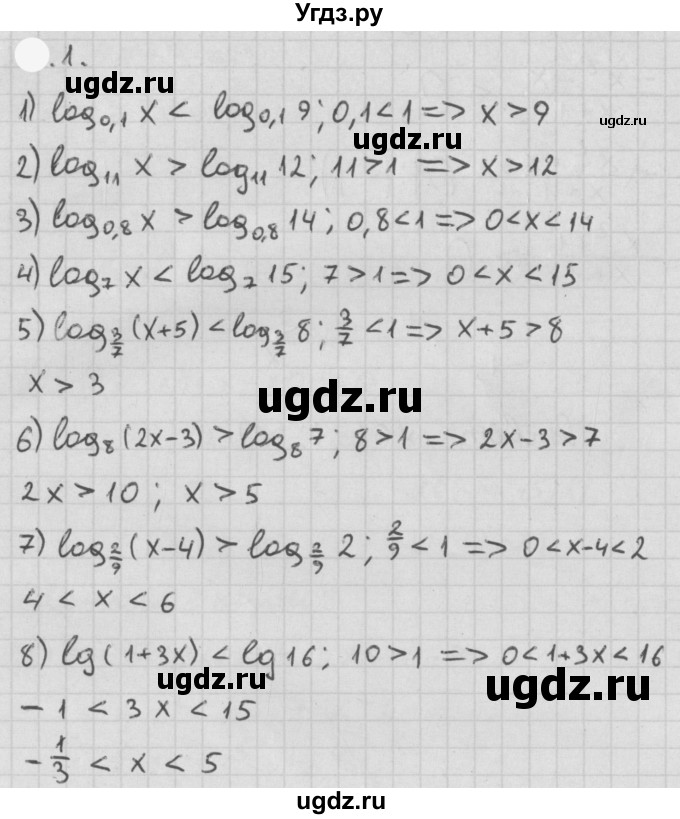 Угдз.ру
.1.
ugdz.ru
1) log₀,₁ x < log₀,₁ 9; 0,1<1 => x > 9
ugdz.ru
ugdz.ru
2) log₁₁ x > log₁₁ 12; 11>1 => x>12
3) log₀,₈ x > log₀,₈ 14; 0,8<1 => 0<x<14
4) log₇ x < log₇ 15; 7>1 => 0<x<15
5) log_{3/7} (x+5) < log_{3/7} 8; 3/7 <1 => x+5>8
x > 3
ugdz.ru
6) log₈ (2x-3) > log₈ 7; 8>1 => 2x-3>7
2x>10; x>5
7) log_{2/9} (x-4) > log_{2/9} 2; 2/9 < 1 => 0<x-4<2
4 < x < 6
8) lg(1+3x) < lg 16; 10>1 => 0<1+3x<16
ugdz.ru
ugdz.ru
-1 < 3x < 15
-1/3 < x < 5
ugdz.ru